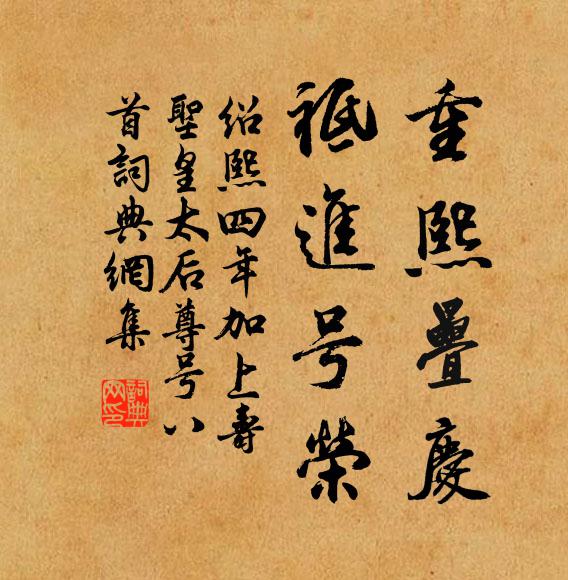 重熙疊慶
祗進号榮
绍熙四年加上壽
聖皇太后尊号八
首詞典網集
詞典
网印